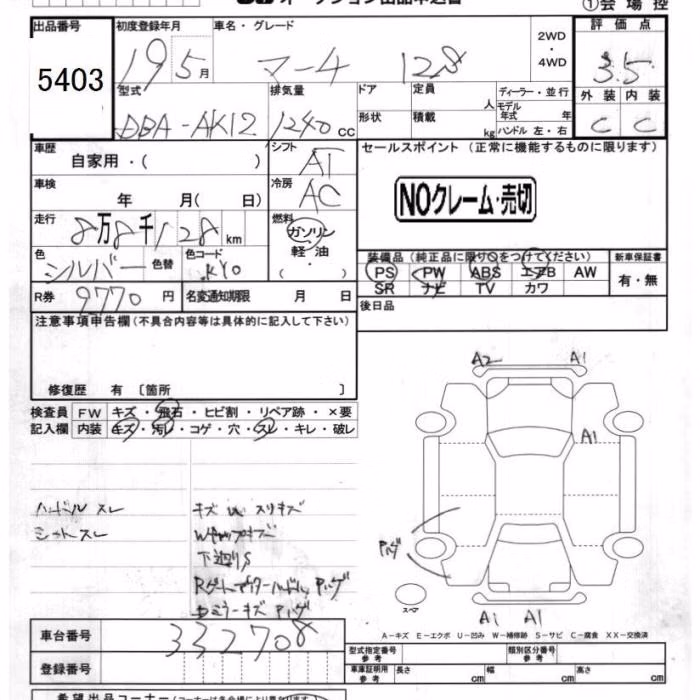 オークション出品申込書
①会場控
出品番号 初度登録年月 車名・グレード 2WD・4WD 評価点
5403 19 5月 マーチ 12S 3.5
型式 排気量 ドア 定員 人 ディーラー・並行 外装 内装
DBA-AK12 1240cc 形状 積載 kg モデル年式 年 C C
ハンドル 左・右
車歴 シフト セールスポイント (正常に機能するものに限ります)
自家用・( ) AT
車検 冷房 NOクレーム・売切
年 月( 日) AC
走行 燃料
8万8千128km ガソリン
軽油
・
色 色替 色コード 装備品 (純正品に限り○をつけてください) 新車保証書
シルバー KY0 PS PW ABS エアB AW 有・無
R券 9770円 名変通知期限 月 日 SR ナビ TV カワ
後日品
注意事項申告欄(不具合内容等は具体的に記入して下さい)
修復歴 有 〔箇所 〕
検査員 FW キズ・飛石・ヒビ割・リペア跡・×要
記入欄 内装 キズ・汚レ・コゲ・穴・スレ・キレ・破レ
A2 A1
A1
ハンドルスレ キズ スリキズ
シートスレ
下廻りS
Pハゲ
スペア
A1 A1
A-キズ E-エクボ U-凹み W-補修跡 S-サビ C-腐食 XX-交換済
車台番号 332708
型式指定番号 参考 類別区分番号 参考
登録番号 車庫証明用 参考 長さ cm 幅 cm 高さ cm
希望出品コーナー